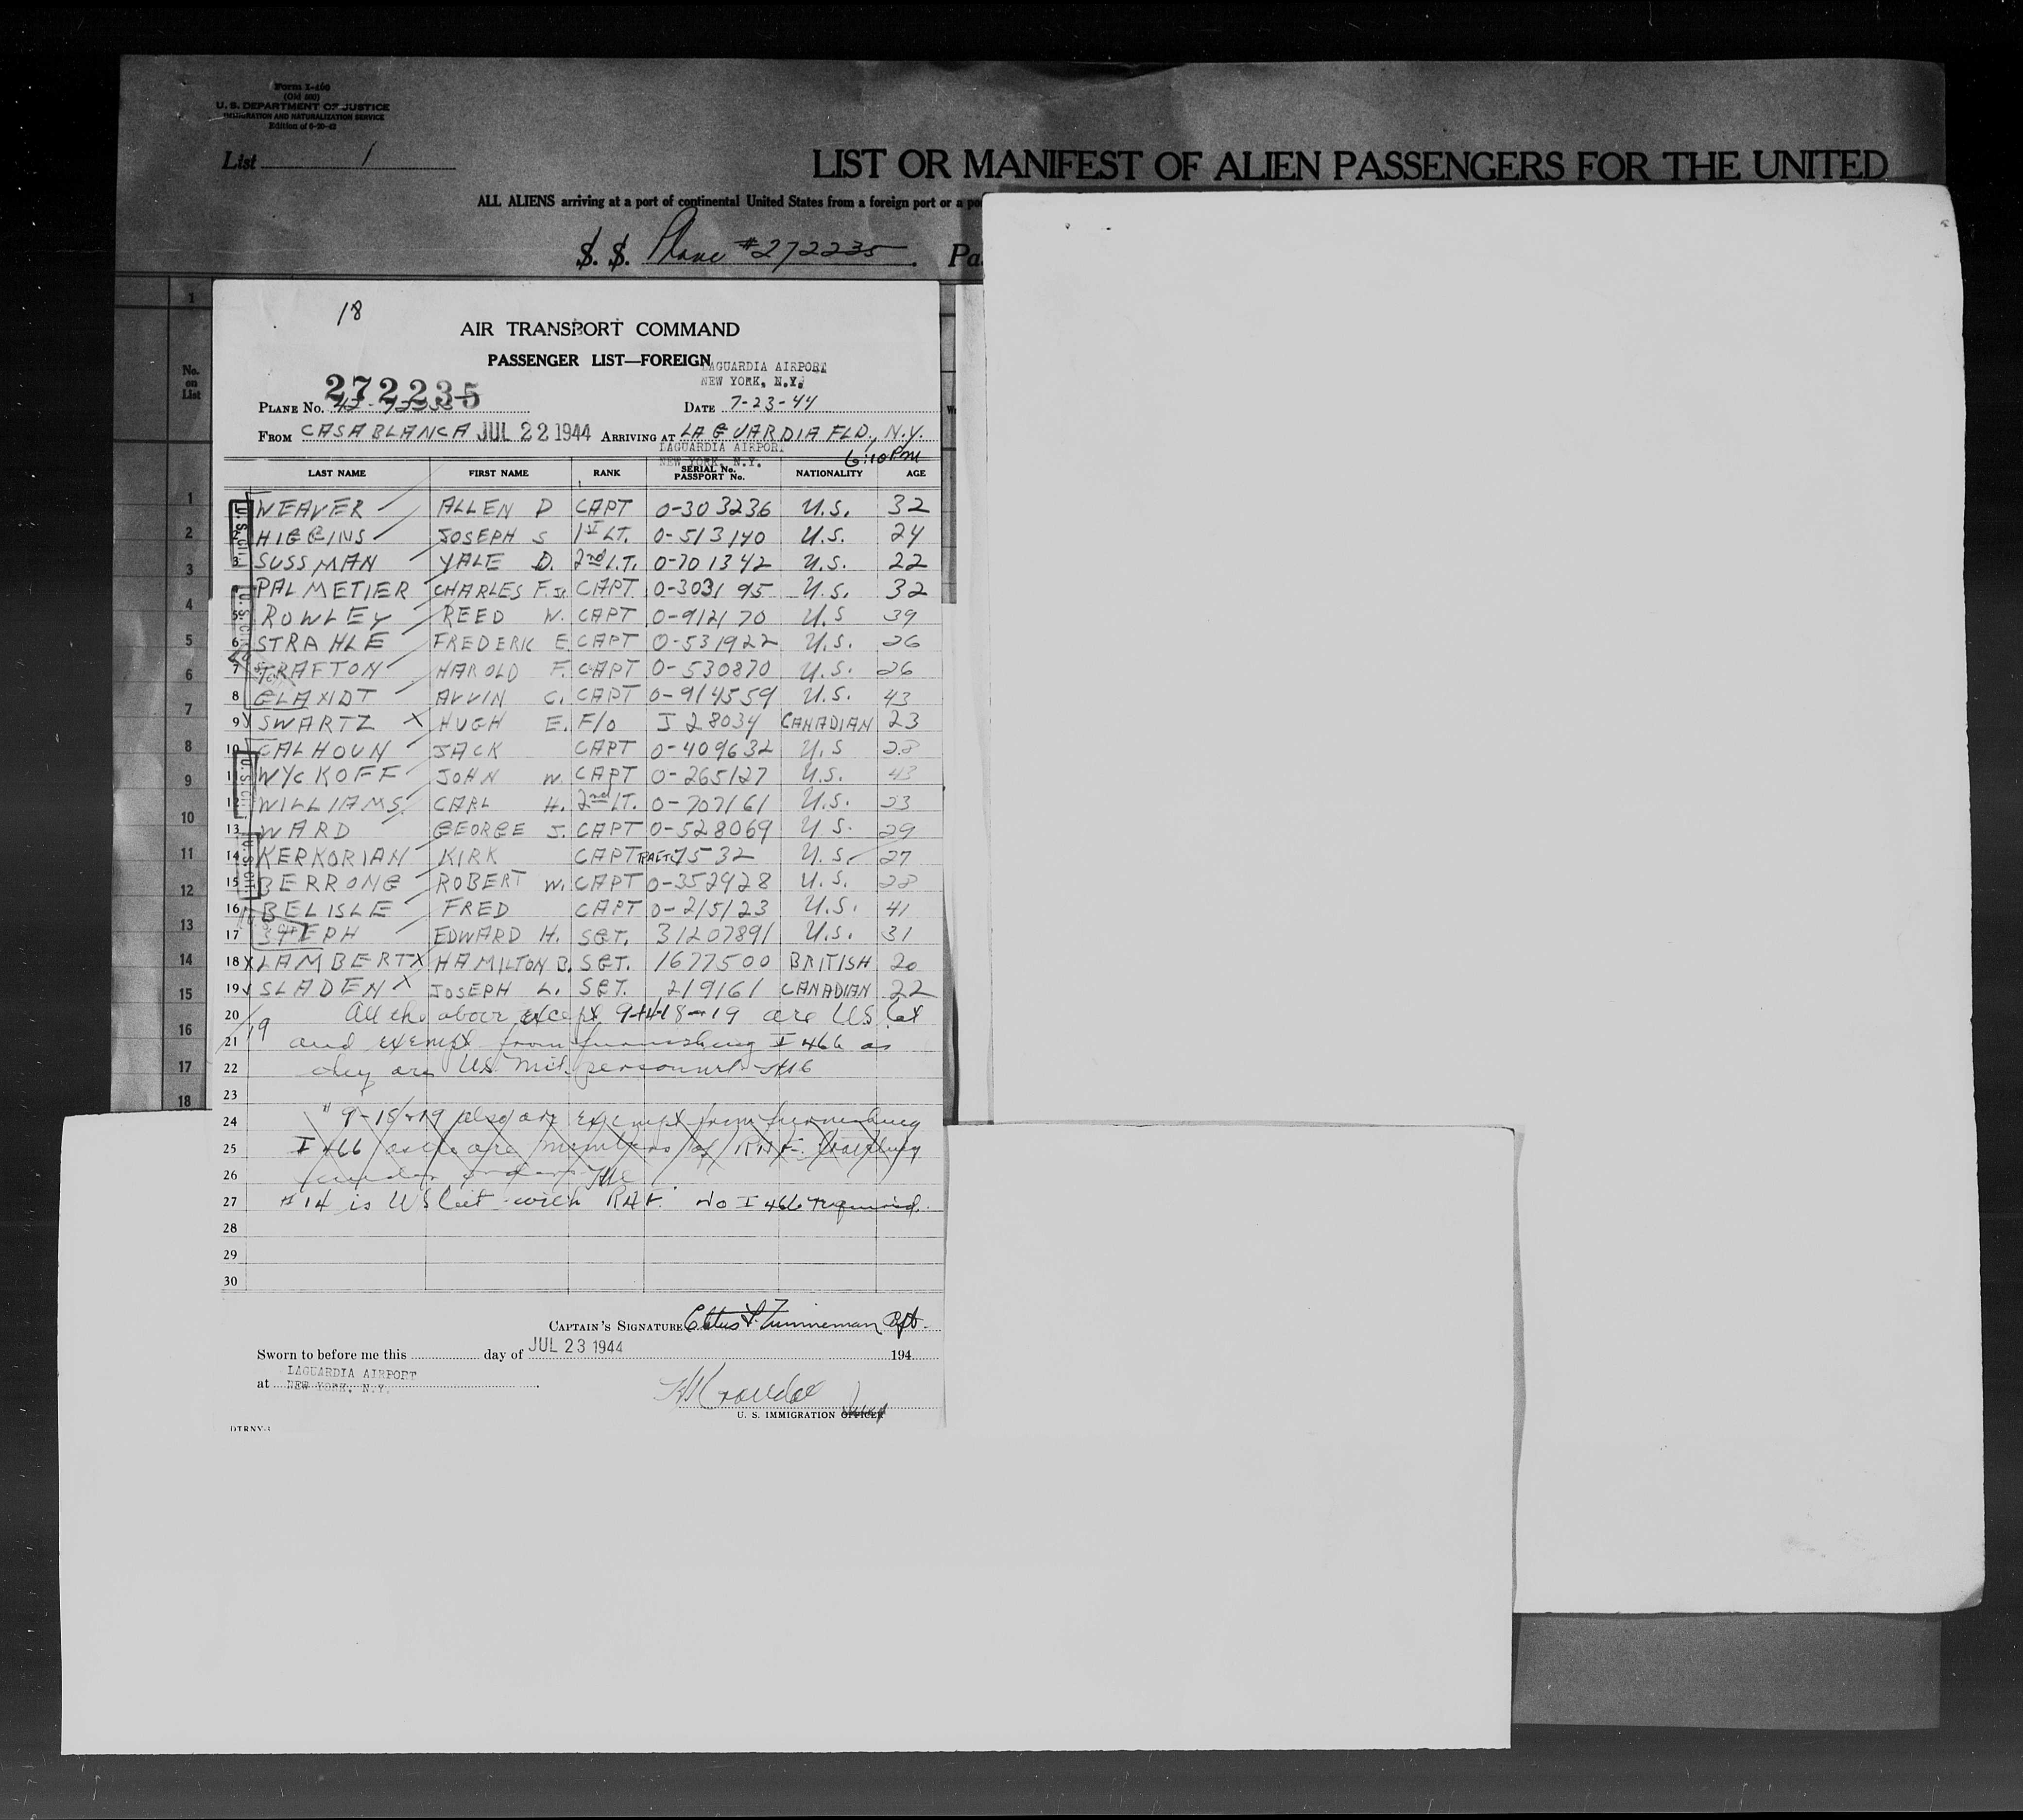 Form I-460
(Old 500)
U. S. DEPARTMENT OF JUSTICE
IMMIGRATION AND NATURALIZATION SERVICE
Edition of 6-20-42
List 1
LIST OR MANIFEST OF ALIEN PASSENGERS FOR THE UNITED
ALL ALIENS arriving at a port of continental United States from a foreign port or a po
S. S. Plane #272235. Pa
18
AIR TRANSPORT COMMAND
PASSENGER LIST—FOREIGN
LAGUARDIA AIRPORT
NEW YORK, N.Y.
272235
PLANE No. DATE 7-23-44
FROM CASABLANCA JUL 22 1944 ARRIVING AT LAGUARDIA FLD., N.Y.
LAGUARDIA AIRPORT
NEW YORK, N.Y. 6:10 PM
LAST NAME FIRST NAME RANK SERIAL No. PASSPORT No. NATIONALITY AGE
1 WEAVER ALLEN D CAPT 0-303236 U.S. 32
2 HIGGINS JOSEPH S 1ST LT. 0-513140 U.S. 24
3 SUSSMAN YALE D. 2nd LT. 0-701342 U.S. 22
PALMETIER CHARLES F. Jr. CAPT. 0-303195 U.S. 32
5 ROWLEY REED W. CAPT 0-912170 U.S 39
6 STRAHLE FREDERIC E. CAPT 0-531922 U.S. 26
7 TRAFTON HAROLD F. CAPT 0-530870 U.S. 26
8 GLANDT ALVIN C. CAPT 0-914559 U.S. 43
9 SWARTZ X HUGH E. F/O J 28034 CANADIAN 23
10 CALHOUN JACK CAPT 0-409632 U.S 28
11 WYCKOFF JOHN W. CAPT 0-265127 U.S. 43
12 WILLIAMS CARL H. 2nd LT. 0-707161 U.S. 23
13 WARD GEORGE J. CAPT 0-528069 U.S. 29
14 KERKORIAN KIRK CAPT 7532 U.S. 27
15 BERRONG ROBERT W. CAPT 0-352928 U.S. 28
16 BELISLE FRED CAPT 0-215123 U.S. 41
17 STEPH EDWARD H. SGT. 31207891 U.S. 31
18 X LAMBERT X HAMILTON B. SGT. 1677500 BRITISH 20
19 SLADEN X JOSEPH L. SGT. 219161 CANADIAN 22
20 All the above except 9+14+18-19 are US Cit
19
21 and exempt from furnishing I 466 as
22 they are US Mil. personnel
23
24 # 9-18+19 also are exempt from furnishing
25 I 466 as are members of RAF. traveling
26 under orders
27 #14 is US Cit with RAF. No I 466 required.
28
29
30
CAPTAIN'S SIGNATURE Zimmerman Capt.
Sworn to before me this day of JUL 23 1944 194
at LAGUARDIA AIRPORT
NEW YORK, N.Y.
U. S. IMMIGRATION OFFICER
DTRNY-1
No. on List
1
2
3
4
5
6
7
8
9
10
11
12
13
14
15
16
17
18